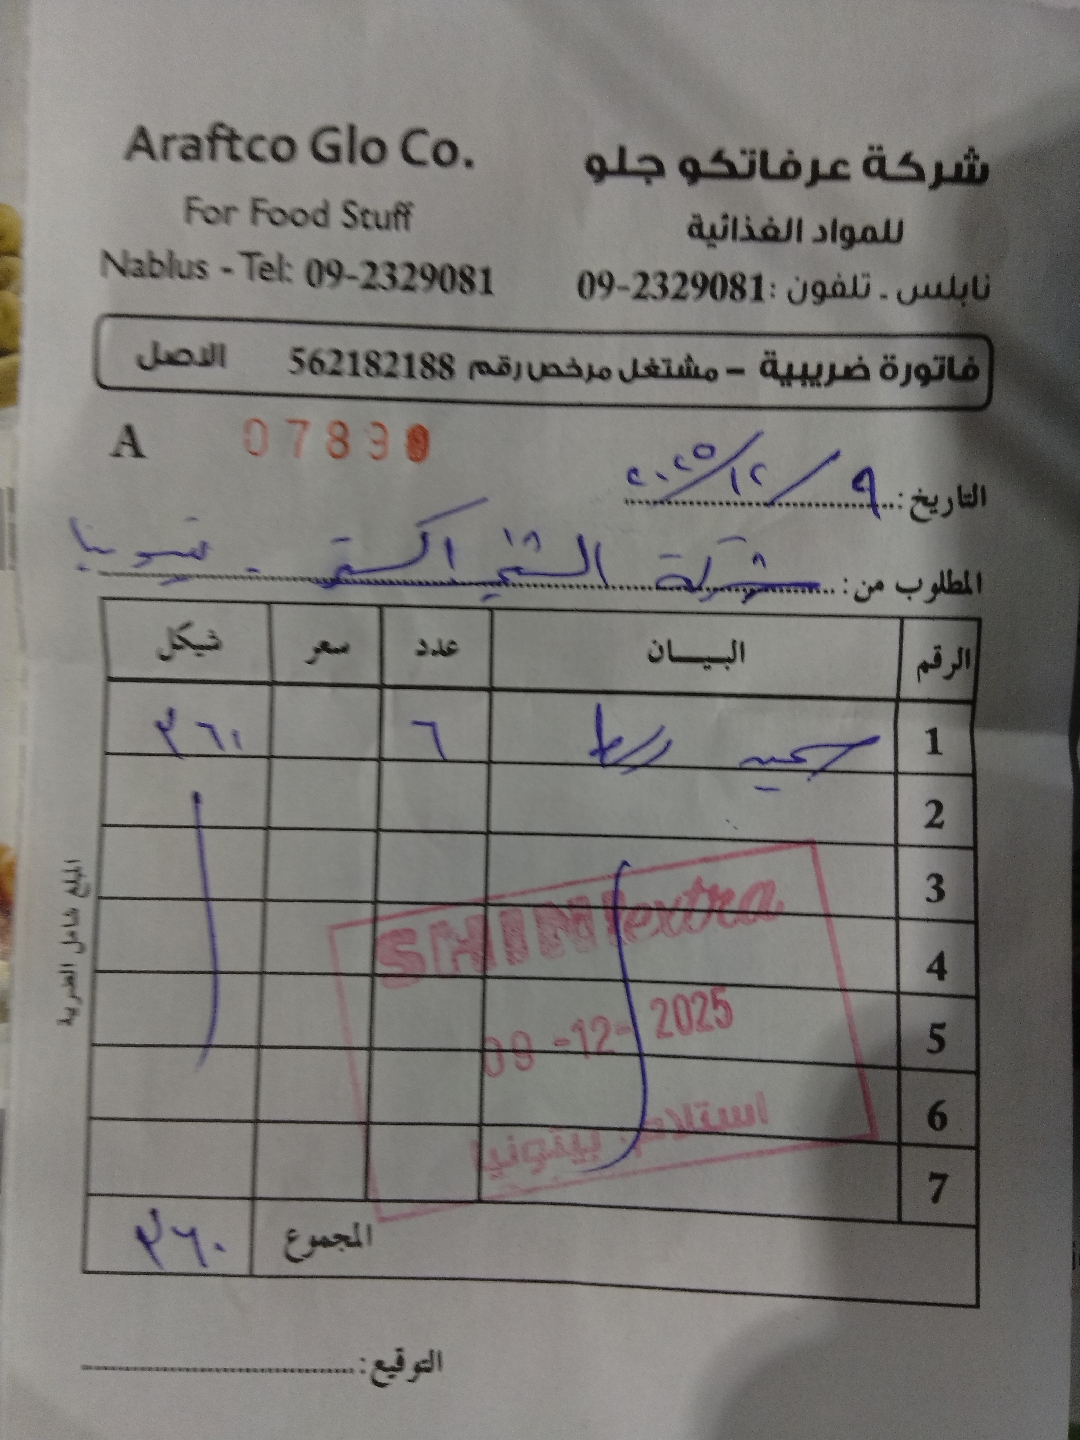 Araftco Glo Co.
For Food Stuff
Nablus - Tel: 09-2329081
شركة عرفاتكو جلو
للمواد الغذائية
نابلس - تلفون: 09-2329081
فاتورة ضريبية - مشتغل مرخص رقم 562182188 الاصل
A 0783
التاريخ: ٩ / ١٢ / ٢٠٢٥
المطلوب من: شركة الشني اكسترا - بيتونيا
الرقم البيـــان عدد سعر شيكل
1 ٦ ٣٦٠
2
3
4
5
6
7
المجموع ٣٦٠
المبلغ شامل الضريبة
SHINI extra
09 -12- 2025
استلام بيتونيا
التوقيع: